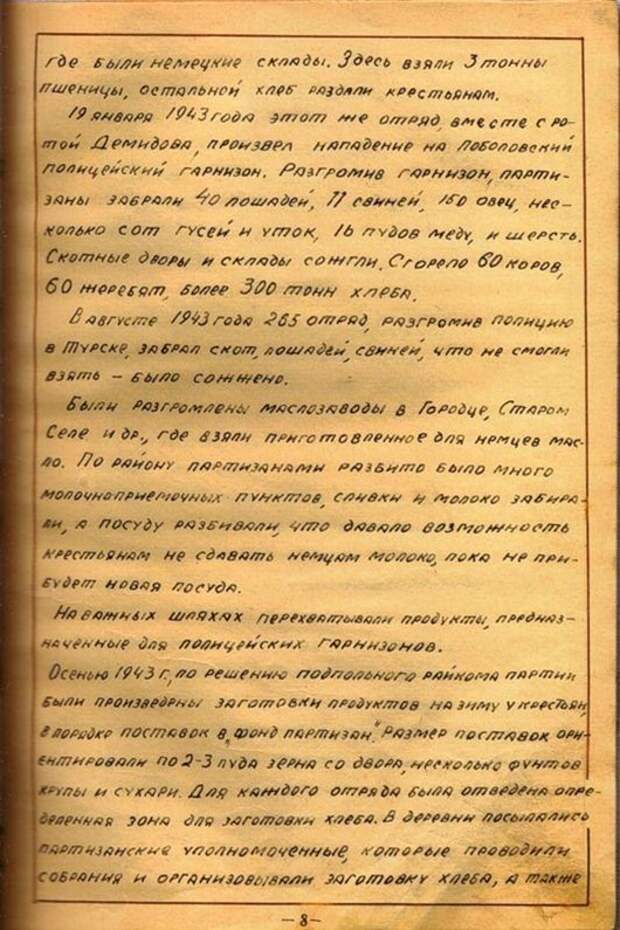 где были немецкие склады. Здесь взяли 3 тонны
пшеницы, остальной хлеб раздали крестьянам.
19 января 1943 года этот же отряд, вместе с ро-
той Демидова, произвел нападение на Лоболовский
полицейский гарнизон. Разгромив гарнизон, парти-
заны забрали 40 лошадей, 11 свиней, 150 овец, нес-
колько сот гусей и уток, 16 пудов меду, и шерсть.
Скотные дворы и склады сожгли. Сгорело 60 коров,
60 жеребят, более 300 тонн хлеба.
В августе 1943 года 265 отряд, разгромив полицию
в Турске, забрал скот, лошадей, свиней, что не смогли
взять – было сожжено.
Были разгромлены маслозаводы в Городце, Старом
Селе и др., где взяли приготовленное для немцев мас-
ло. По району партизанами разбито было много
молочноприемочных пунктов, сливки и молоко забира-
ли, а посуду разбивали, что давало возможность
крестьянам не сдавать немцам молоко, пока не при-
будет новая посуда.
На важных шляхах перехватывали продукты, предназ-
наченные для полицейских гарнизонов.
Осенью 1943 г, по решению подпольного райкома партии
были произведены заготовки продуктов на зиму у крестьян,
в порядке поставок в „фонд партизан". Размер поставок ори-
ентировали по 2-3 пуда зерна со двора, несколько фунтов
крупы и сухари. Для каждого отряда была отведена опре-
деленная зона для заготовки хлеба. В деревни посылались
партизанские уполномоченные, которые проводили
собрания и организовывали заготовку хлеба, а также
– 8 –